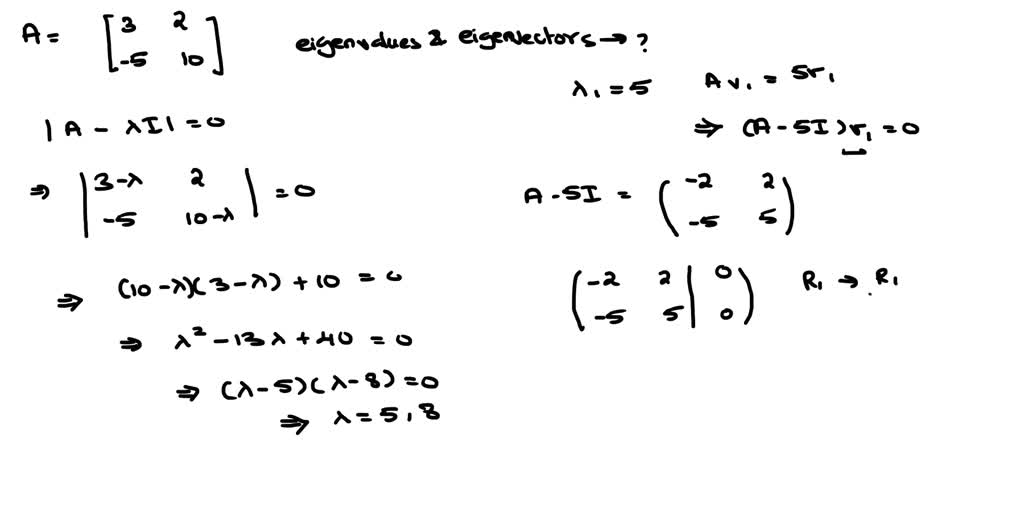 A = [ 3 2 ; -5 10 ] eigenvalues & eigenvectors → ?
|A - λI| = 0
⇒ | 3-λ 2 ; -5 10-λ | = 0
⇒ (10-λ)(3-λ) + 10 = 0
⇒ λ² - 13λ + 40 = 0
⇒ (λ-5)(λ-8) = 0
⇒ λ = 5, 8
λ₁ = 5 Av₁ = 5v₁
⇒ (A - 5I)v₁ = 0
A - 5I = ( -2 2 ; -5 5 )
( -2 2 | 0 ; -5 5 | 0 ) R₁ → R₁